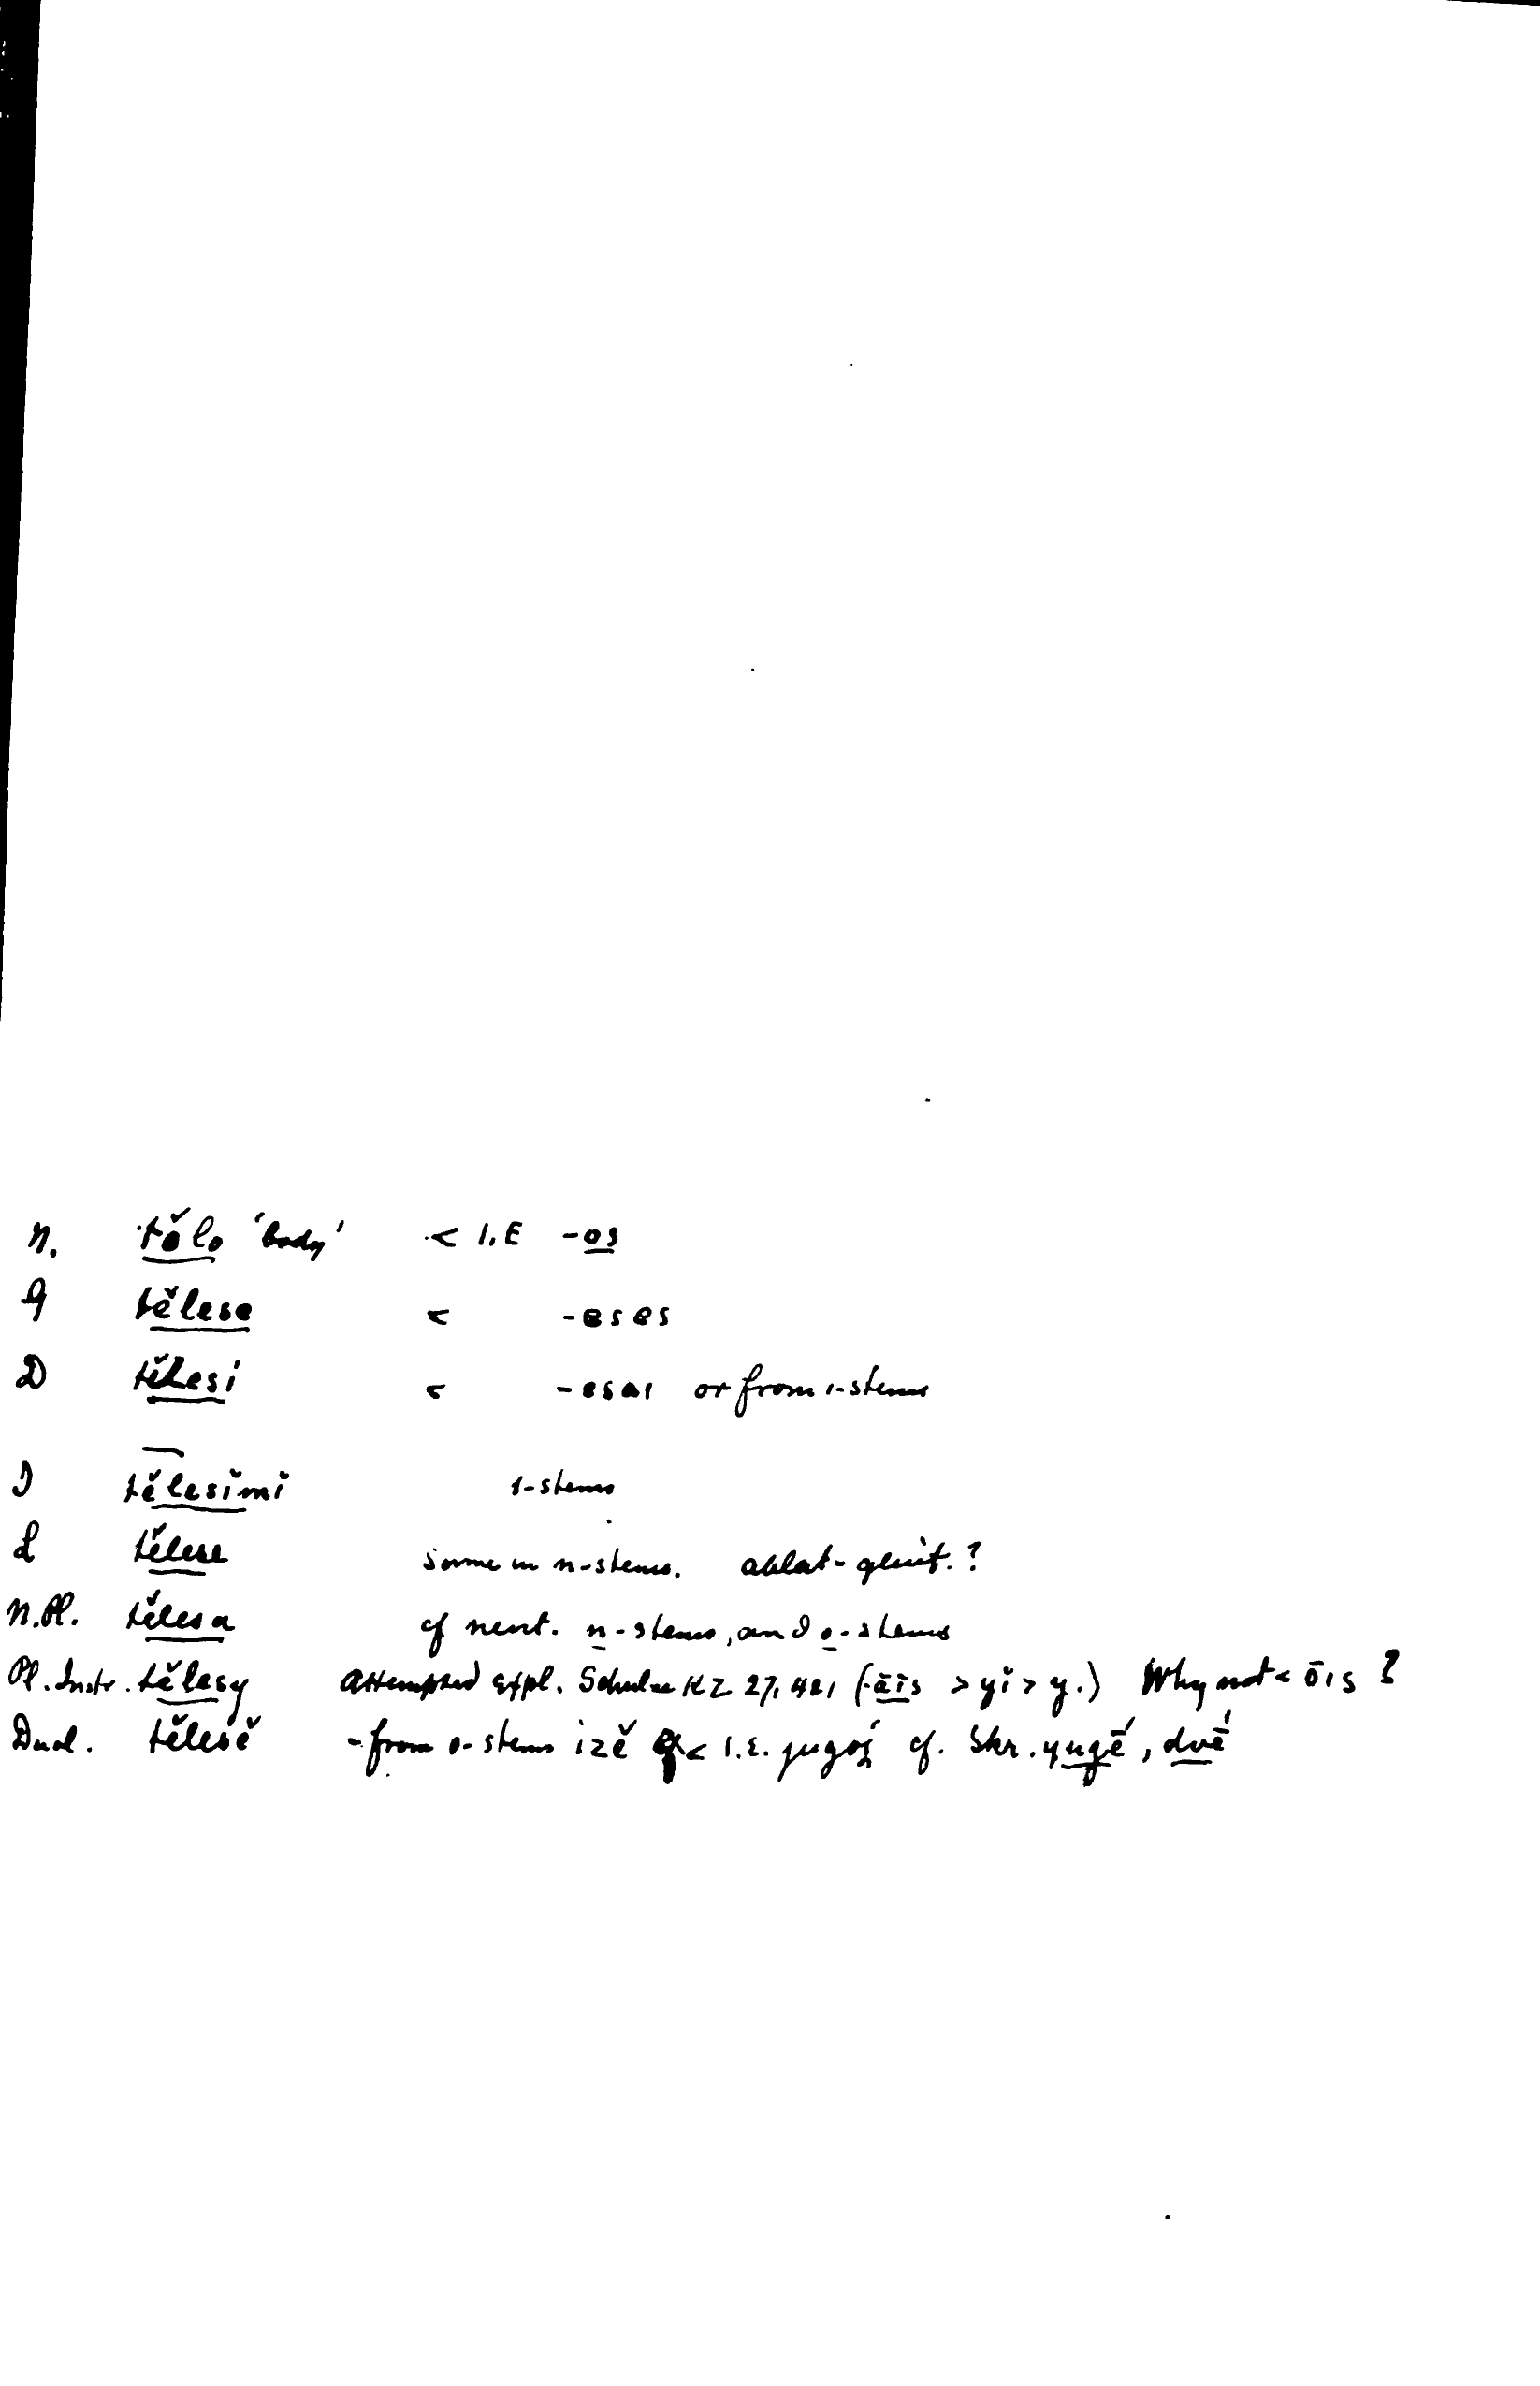 N. tělo 'body' < I.E -os
G tělese < -eses
D tělesi < -esai or from i-stems
I tělesĭmĭ i-stems
L tělese same in n-stems. ablat-genit.?
N.Pl. tělesa cf neut. n-stems, and o-stems
Pl. Instr. tělesy Attempted expl. Schulze KZ 27, 421 (-ā̆ĭs > yĭ > y.) Why not < ōis ?
Dual. tělesě - from o-stems izě < I.E. jugoi̯ cf. Skr. yugé̄, dvé̄